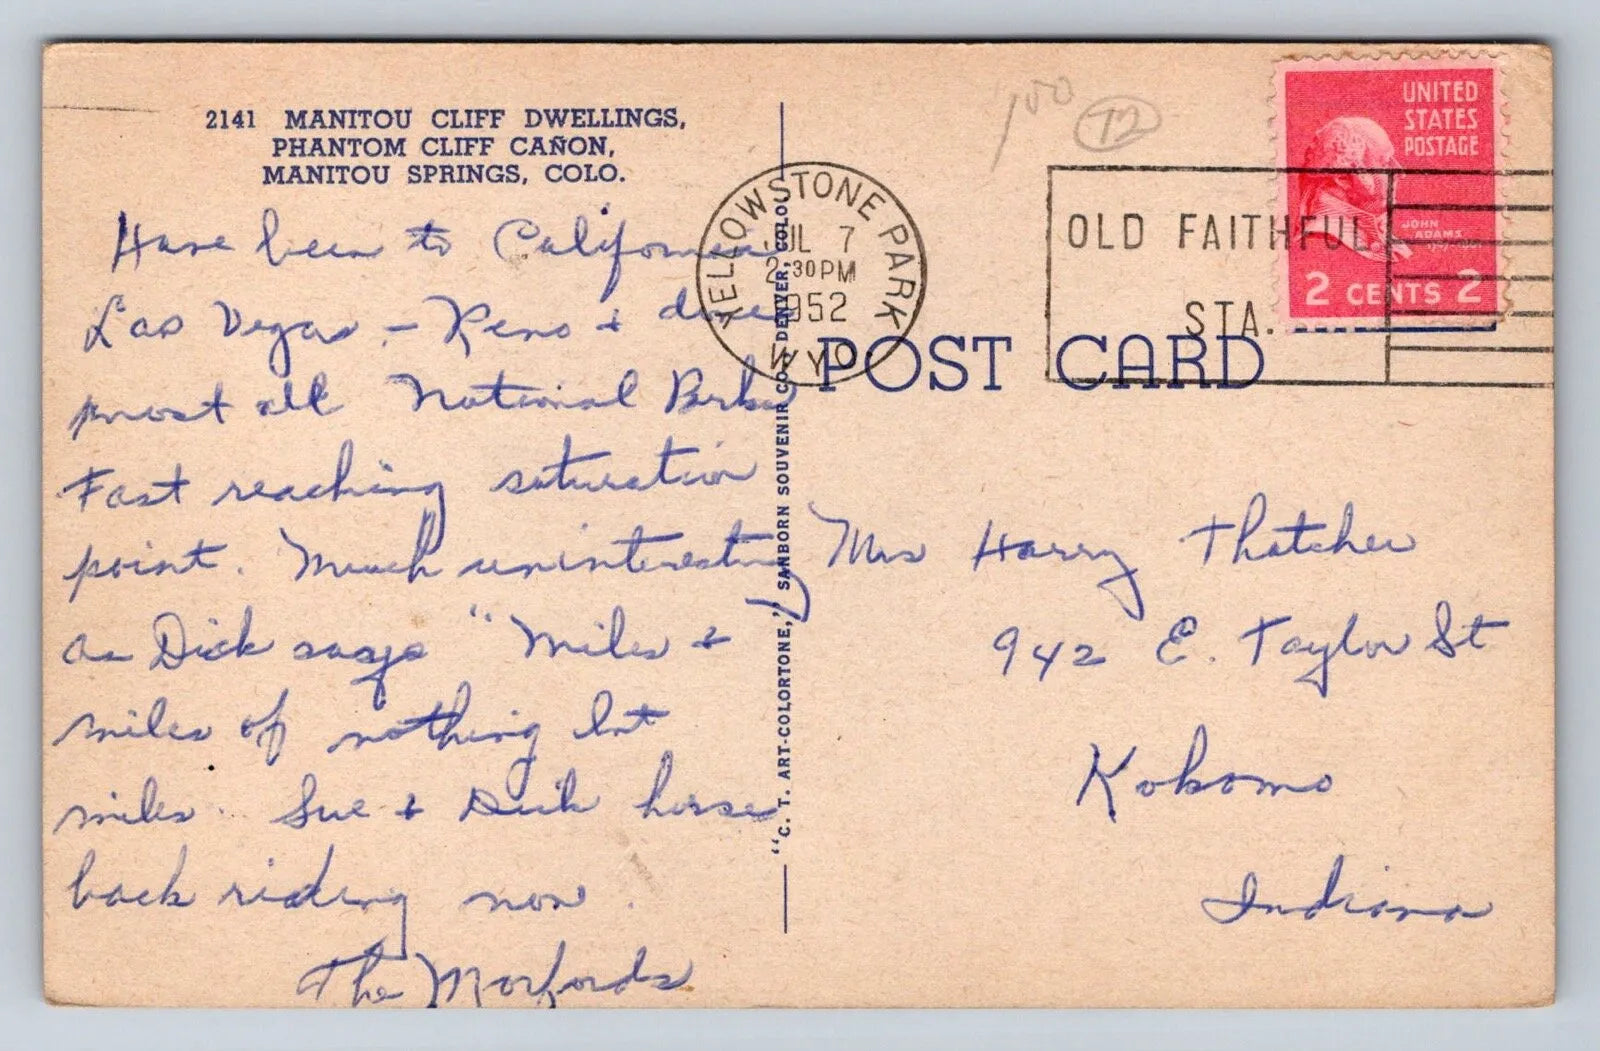 2141 MANITOU CLIFF DWELLINGS,
PHANTOM CLIFF CAÑON,
MANITOU SPRINGS, COLO.
Have been to California
Las Vegas - Reno + done
most all National Parks
Fast reaching saturation
point. Much uninteresting
as Dick says "Miles +
miles of nothing but
miles. Sue + Dick horse
back riding now.
The Morfords
"C. T. ART-COLORTONE," SANBORN SOUVENIR CO., DENVER, COLO.
100
72
YELLOWSTONE PARK
JUL 7
2 30 PM
1952
WYO.
OLD FAITHFUL
STA.
UNITED
STATES
POSTAGE
JOHN
ADAMS
2 CENTS 2
POST CARD
Mrs Harry Thatcher
942 E. Taylor St
Kokomo
Indiana